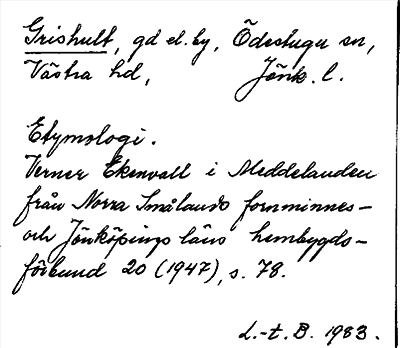 Grishult, gd el. by, Ödestugu sn,
Västra hd, Jönk. l.
Etymologi.
Verner Ekenvall i Meddelanden
från Norra Smålands fornminnes-
och Jönköpings läns hembygds-
förbund 20 (1947), s. 78.
L.-t. B. 1983.